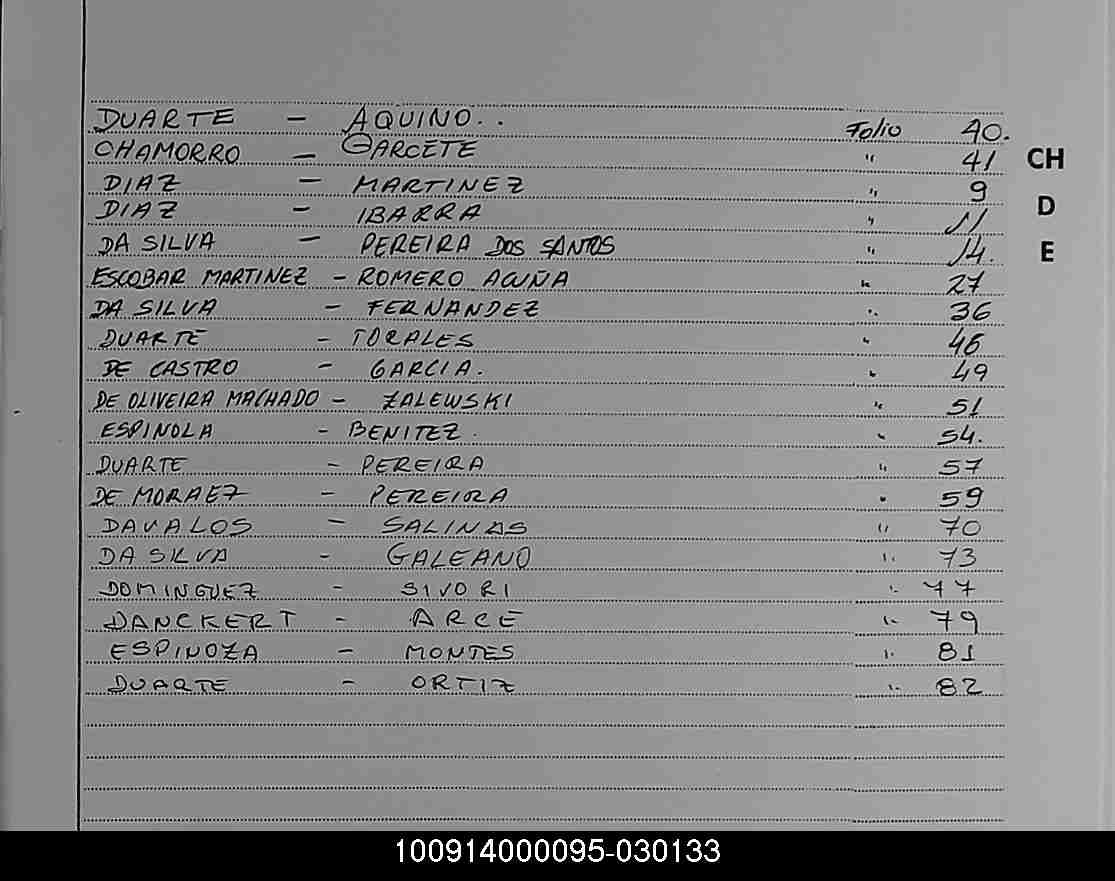 DUARTE - AQUINO.. Folio 40.
CHAMORRO - GARCETE " 41 CH
DIAZ - MARTINEZ " 9
DIAZ - IBARRA " 11 D
DA SILVA - PEREIRA DOS SANTOS " 14. E
ESCOBAR MARTINEZ - ROMERO ACUÑA " 27
DA SILVA - FERNANDEZ " 36
DUARTE - TORALES " 46
DE CASTRO - GARCIA. " 49
DE OLIVEIRA MACHADO - ZALEWSKI " 51
ESPINOLA - BENITEZ. " 54.
DUARTE - PEREIRA " 57
DE MORAEZ - PEREIRA " 59
DAVALOS - SALINAS " 70
DA SILVA - GALEANO " 73
DOMINGUEZ - SIVORI " 77
DANCKERT - ARCE " 79
ESPINOZA - MONTES " 81
DUARTE - ORTIZ " 82
100914000095-030133